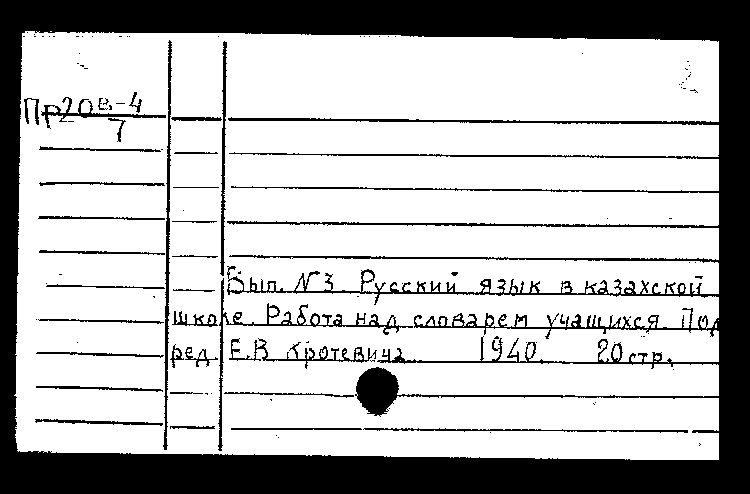 2
Пр20в-4
7
Вып. N3. Русский язык в казахской
школе. Работа над словарем учащихся. Под
ред. Е.В Кротевича. 1940. 20стр.